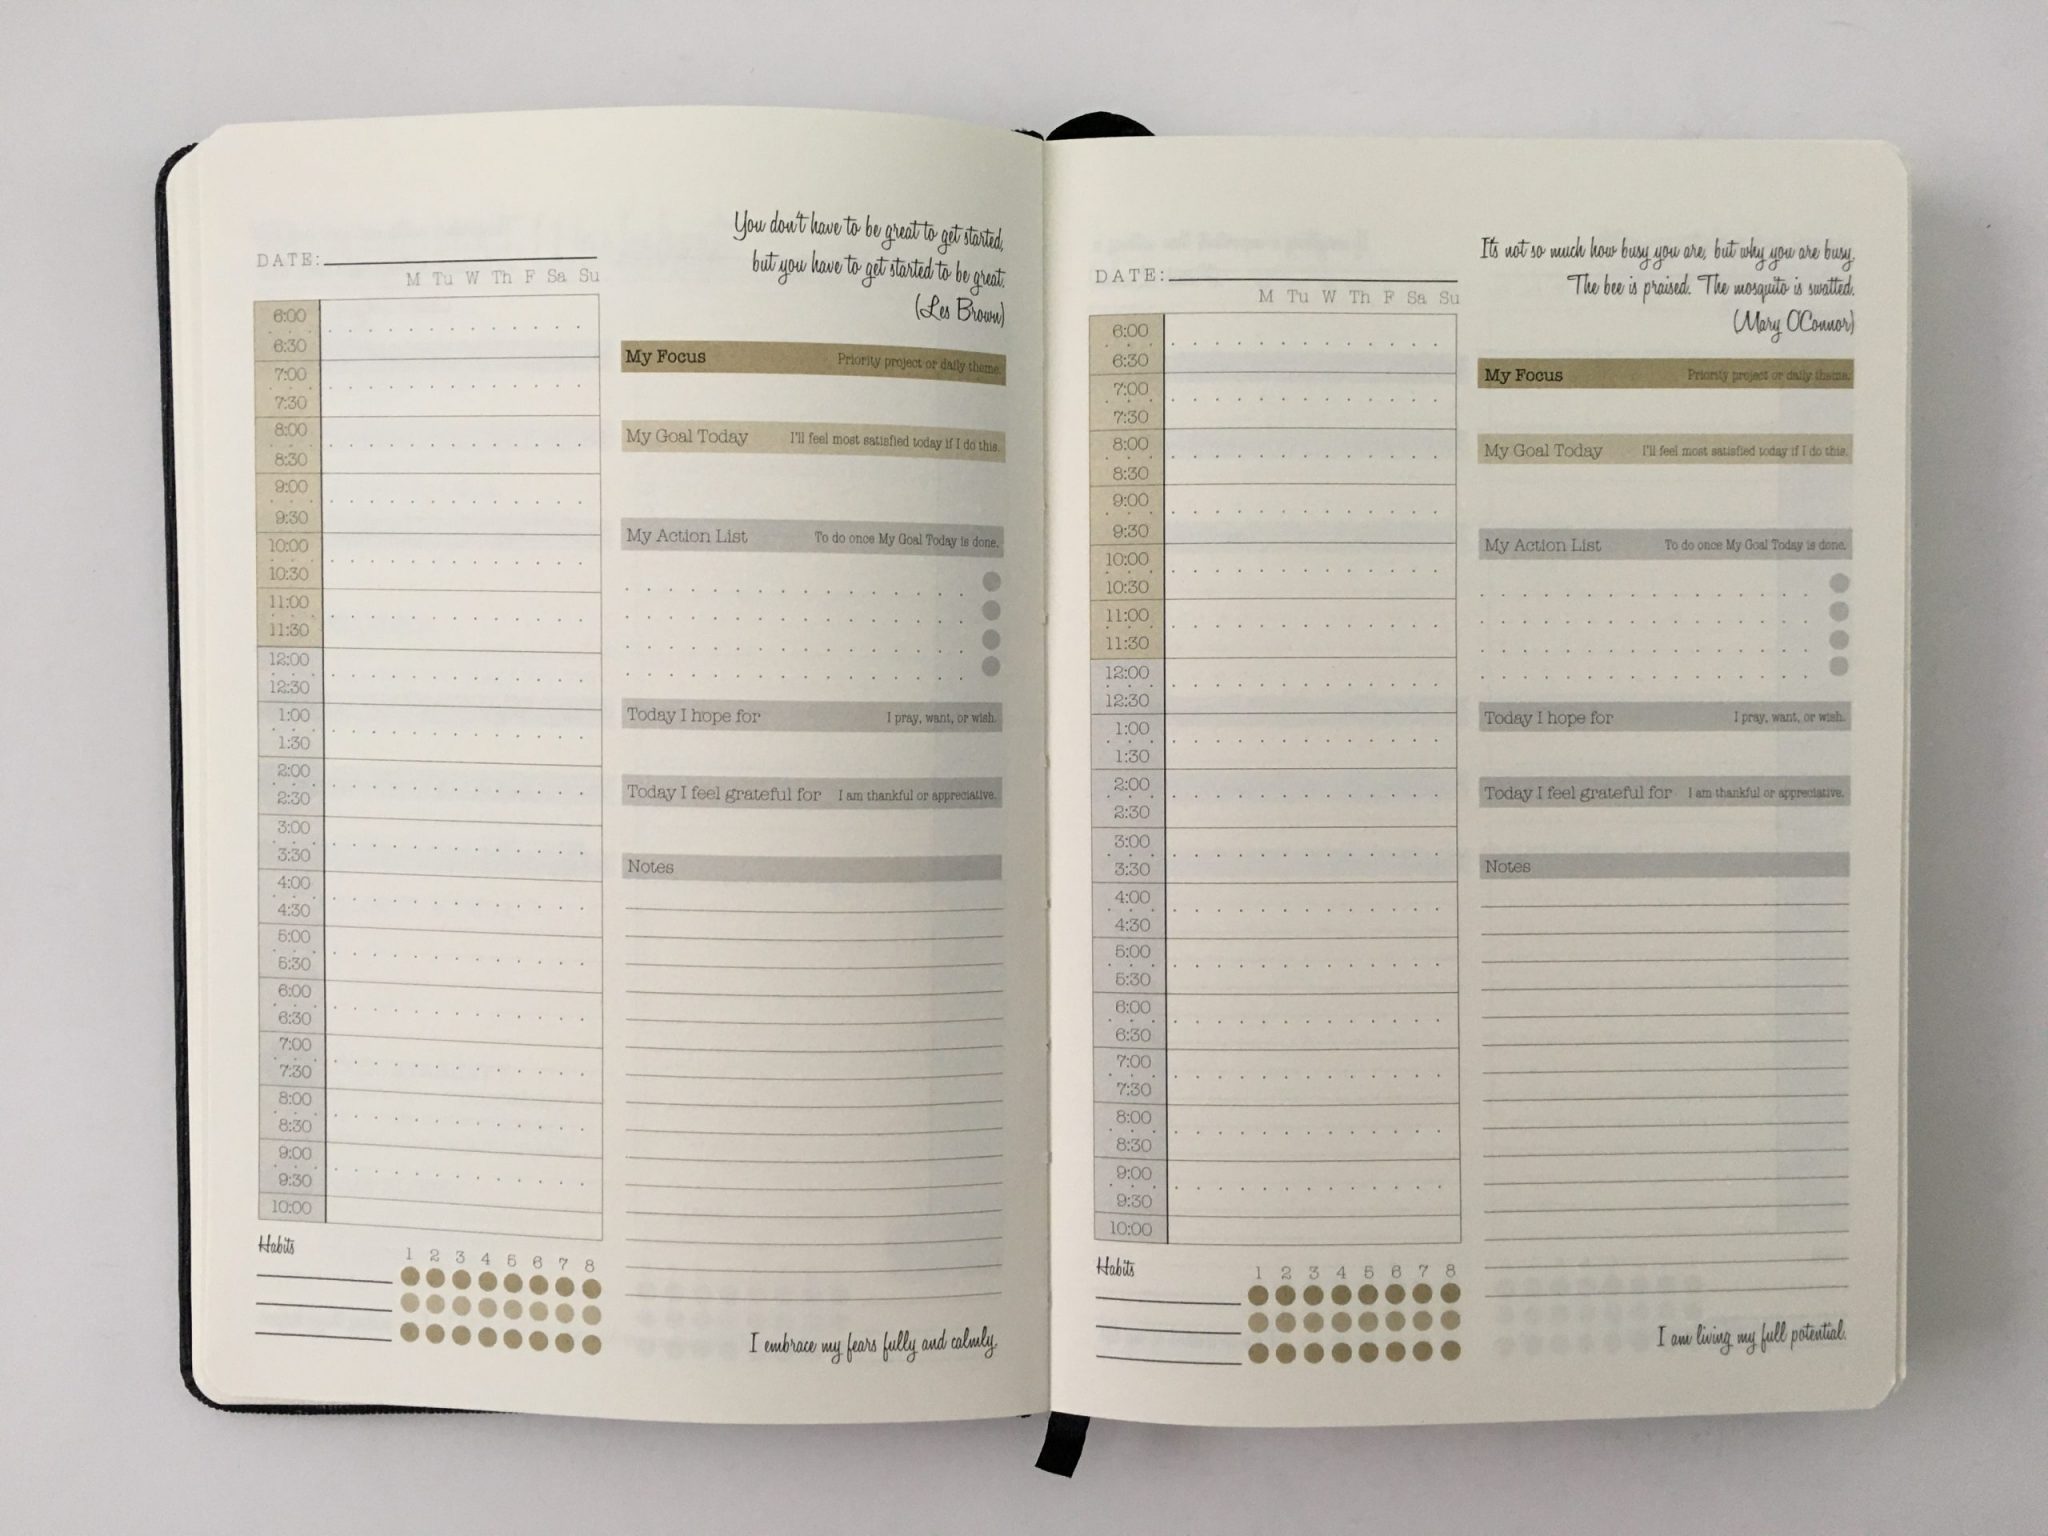 DATE:
M Tu W Th F Sa Su
6:00
6:30
7:00
7:30
8:00
8:30
9:00
9:30
10:00
10:30
11:00
11:30
12:00
12:30
1:00
1:30
2:00
2:30
3:00
3:30
4:00
4:30
5:00
5:30
6:00
6:30
7:00
7:30
8:00
8:30
9:00
9:30
10:00
Habits
1 2 3 4 5 6 7 8
You don't have to be great to get started,
but you have to get started to be great.
(Les Brown)
My Focus Priority project or daily theme.
My Goal Today I'll feel most satisfied today if I do this.
My Action List To do once My Goal Today is done.
Today I hope for I pray, want, or wish.
Today I feel grateful for I am thankful or appreciative.
Notes
I embrace my fears fully and calmly.
DATE:
M Tu W Th F Sa Su
6:00
6:30
7:00
7:30
8:00
8:30
9:00
9:30
10:00
10:30
11:00
11:30
12:00
12:30
1:00
1:30
2:00
2:30
3:00
3:30
4:00
4:30
5:00
5:30
6:00
6:30
7:00
7:30
8:00
8:30
9:00
9:30
10:00
Habits
1 2 3 4 5 6 7 8
It's not so much how busy you are, but why you are busy.
The bee is praised. The mosquito is swatted.
(Mary O'Connor)
My Focus Priority project or daily theme.
My Goal Today I'll feel most satisfied today if I do this.
My Action List To do once My Goal Today is done.
Today I hope for I pray, want, or wish.
Today I feel grateful for I am thankful or appreciative.
Notes
I am living my full potential.